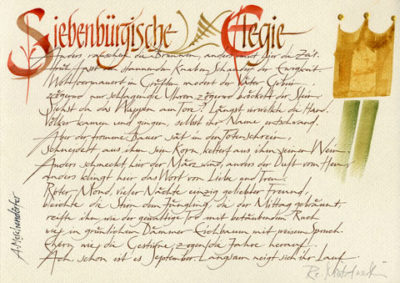 Siebenbürgische Elegie
Anders rauschen die Brunnen, anders rinnt hier die Zeit.
Früh fasst den staunenden Knaben Schauder der Ewigkeit.
Wohlvermauert in Grüften modert der Väter Gebein,
zögernd nur schlagen die Uhren, zögernd bröckelt der Stein.
Siehst du das Wappen am Tore? Längst verwelkte die Hand.
Völker kamen und gingen, selbst ihr Name entschwand.
Aber der fromme Bauer sät in den Totenschrein,
schneidet aus ihm sein Korn, keltert aus ihm seinen Wein.
Anders schmeckt hier der Märzwind, anders der Duft vom Heu,
anders klingt hier das Wort von Liebe und Treu.
Roter Mond, vieler Nächte einzig geliebter Freund,
bleichte die Stirn dem Jüngling, die der Mittag gebräunt,
reifte ihn wie der gewaltige Tod mit betäubendem Ruch
wie in grünlichem Dämmer Eichbaum mit weisem Spruch.
Ehern wie die Gestirne zogen die Jahre herauf.
Ach schon ist es September. Langsam neigt sich ihr Lauf.
A. Meschendörfer